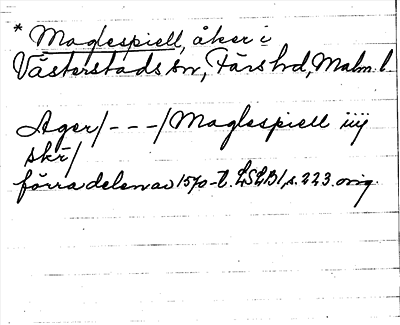 * Maglespiell, åker i
Västerstads sn, Färs hd, Malm. l.
Ager/ - - - / Maglespiell iiij
skr/
förra delen av 1570-t. LSLB1, s. 223. orig.